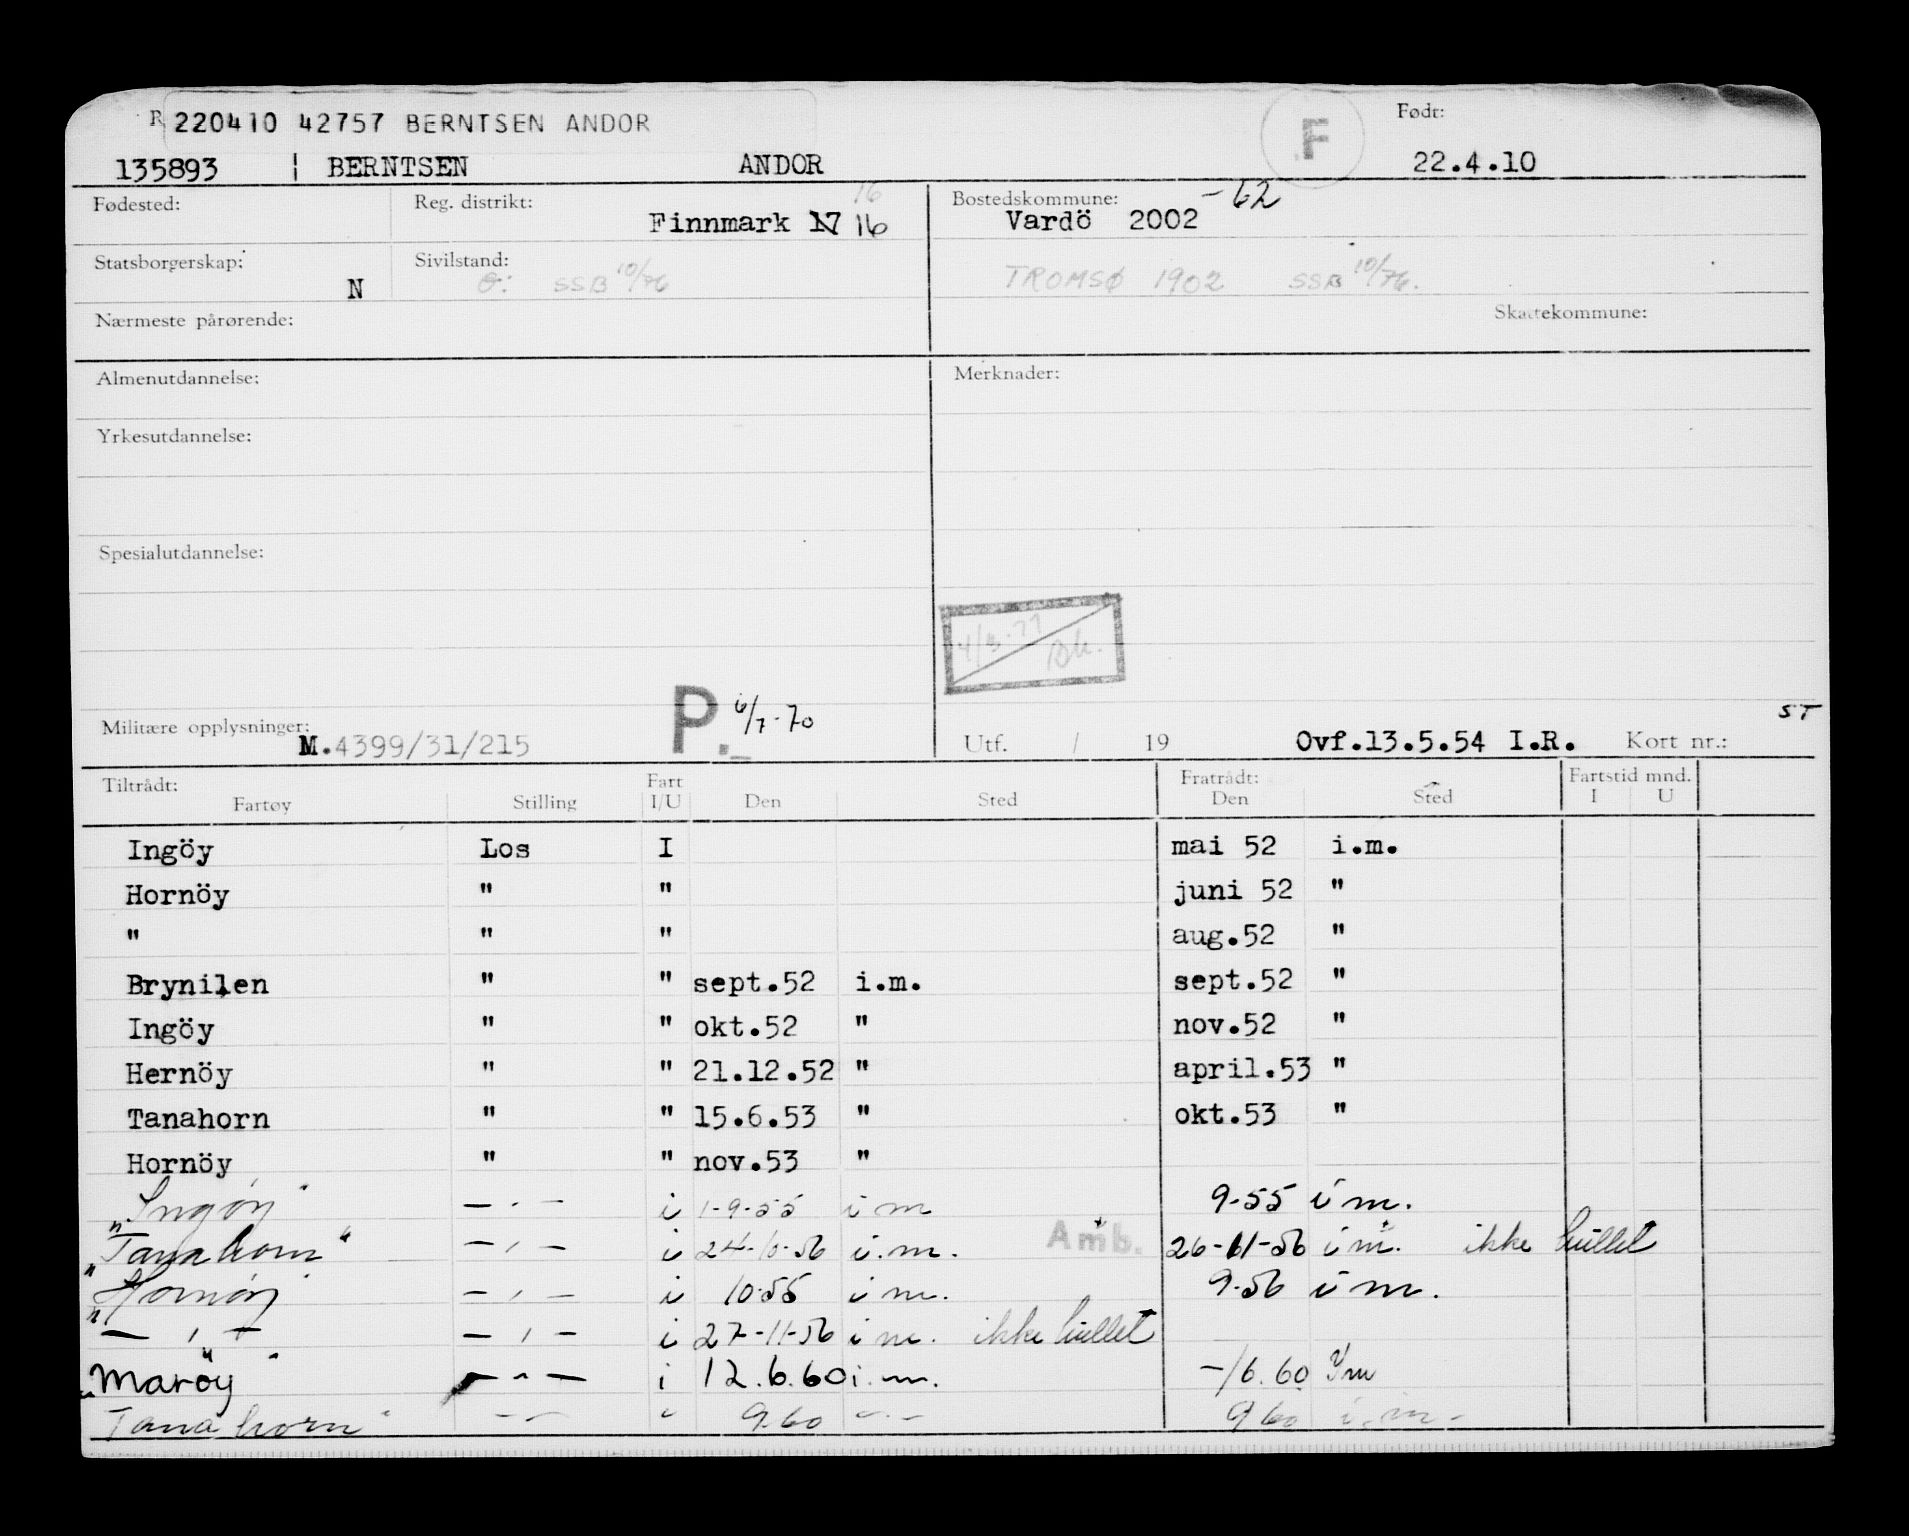 R 220410 42757 BERNTSEN ANDOR F Født:
135893 BERNTSEN ANDOR 22.4.10
Fødested: Reg. distrikt: Finnmark 17 16 16 Bostedskommune: Vardö 2002 -62
Statsborgerskap: N Sivilstand: SSB 10/76 TROMSØ 1902 SSB 10/76.
Nærmeste pårørende: Skattekommune:
Almenutdannelse: Merknader:
Yrkesutdannelse:
Spesialutdannelse:
Militære opplysninger: M.4399/31/215 P. 6/7-70 Utf. / 19 Ovf.13.5.54 I.R. Kort nr.: ST
Tiltrådt: Fart Fratrådt: Fartstid mnd.
Fartøy Stilling I/U Den Sted Den Sted I U
Ingöy Los I mai 52 i.m.
Hornöy " " juni 52 "
" " " aug.52 "
Brynilen " " sept.52 i.m. sept.52 "
Ingöy " " okt.52 " nov.52 "
Hernöy " " 21.12.52 " april.53 "
Tanahorn " " 15.6.53 " okt.53 "
Hornöy " " nov.53 "
"Ingöy" - " - i 1-9-55 i m 9-55 i m.
"Tanahorn" - " - i 24-10-56 i.m. Amb. 26-11-56 i m. ikke hullet
"Hornöy" - " - i 10-55 i m. 9-56 i m.
" - " - - " - i 27-11-56 i m. ikke hullet
"Maröy" - " - i 12.6.60 i.m. -/6.60 i/m
Tanahorn" - " - " 9.60 - " - 9 60 i.m-